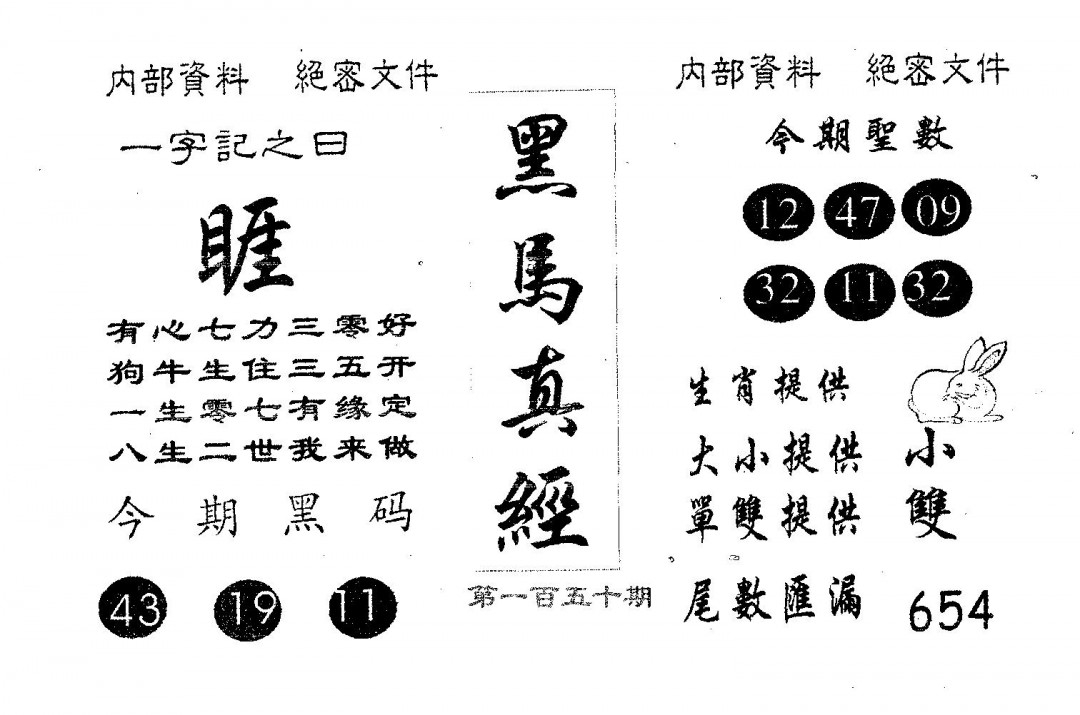 内部資料 絕密文件
一字記之曰
睚
有心七力三零好
狗牛生住三五开
一生零七有缘定
八生二世我来做
今期黑码
43 19 11
黑馬真經
第一百五十期
内部資料 絕密文件
今期聖數
12 47 09
32 11 32
生肖提供
大小提供 小
單雙提供 雙
尾數匯漏 654